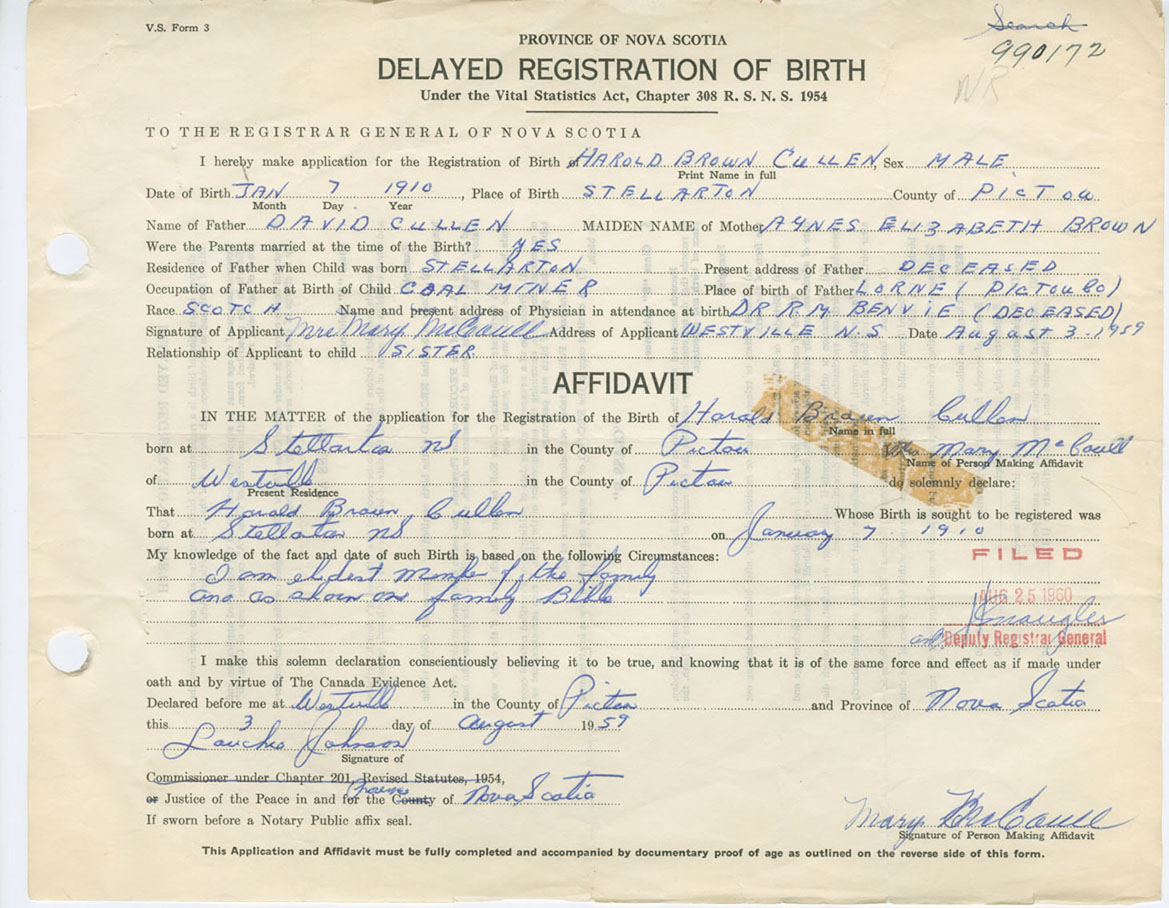 V.S. Form 3
Search
990172
NR
PROVINCE OF NOVA SCOTIA
DELAYED REGISTRATION OF BIRTH
Under the Vital Statistics Act, Chapter 308 R. S. N. S. 1954
TO THE REGISTRAR GENERAL OF NOVA SCOTIA
I hereby make application for the Registration of Birth of HAROLD BROWN CULLEN, Sex MALE
Print Name in full
Date of Birth JAN 7 1910, Place of Birth STELLARTON County of PICTOU
Month Day Year
Name of Father DAVID CULLEN MAIDEN NAME of Mother AYNES ELIZABETH BROWN
Were the Parents married at the time of the Birth? YES
Residence of Father when Child was born STELLARTON Present address of Father DECEASED
Occupation of Father at Birth of Child COAL MINER Place of birth of Father LORNE (PICTOU CO)
Race SCOTCH Name and present address of Physician in attendance at birth DR R.M. BENVIE (DECEASED)
Signature of Applicant Mrs Mary McCaull Address of Applicant WESTVILLE N.S Date August 3 - 1959
Relationship of Applicant to child SISTER
AFFIDAVIT
IN THE MATTER of the application for the Registration of the Birth of Harold Brown Cullen
Name in full
born at Stellarton NS in the County of Pictou Mrs Mary McCaull
Name of Person Making Affidavit
of Westville in the County of Pictou do solemnly declare:
Present Residence
That Harold Brown Cullen Whose Birth is sought to be registered was
born at Stellarton NS on January 7 1910
My knowledge of the fact and date of such Birth is based on the following Circumstances:
FILED
I am eldest member of the family
and as shown on family Bible
AUG 25 1960
Deputy Registrar General
I make this solemn declaration conscientiously believing it to be true, and knowing that it is of the same force and effect as if made under
oath and by virtue of The Canada Evidence Act.
Declared before me at Westville in the County of Pictou and Province of Nova Scotia
this 3 day of August 1959
Johnson
Signature of
Commissioner under Chapter 201, Revised Statutes, 1954,
or Justice of the Peace in and for the County Province of Nova Scotia
If sworn before a Notary Public affix seal.
Mary McCaull
Signature of Person Making Affidavit
This Application and Affidavit must be fully completed and accompanied by documentary proof of age as outlined on the reverse side of this form.